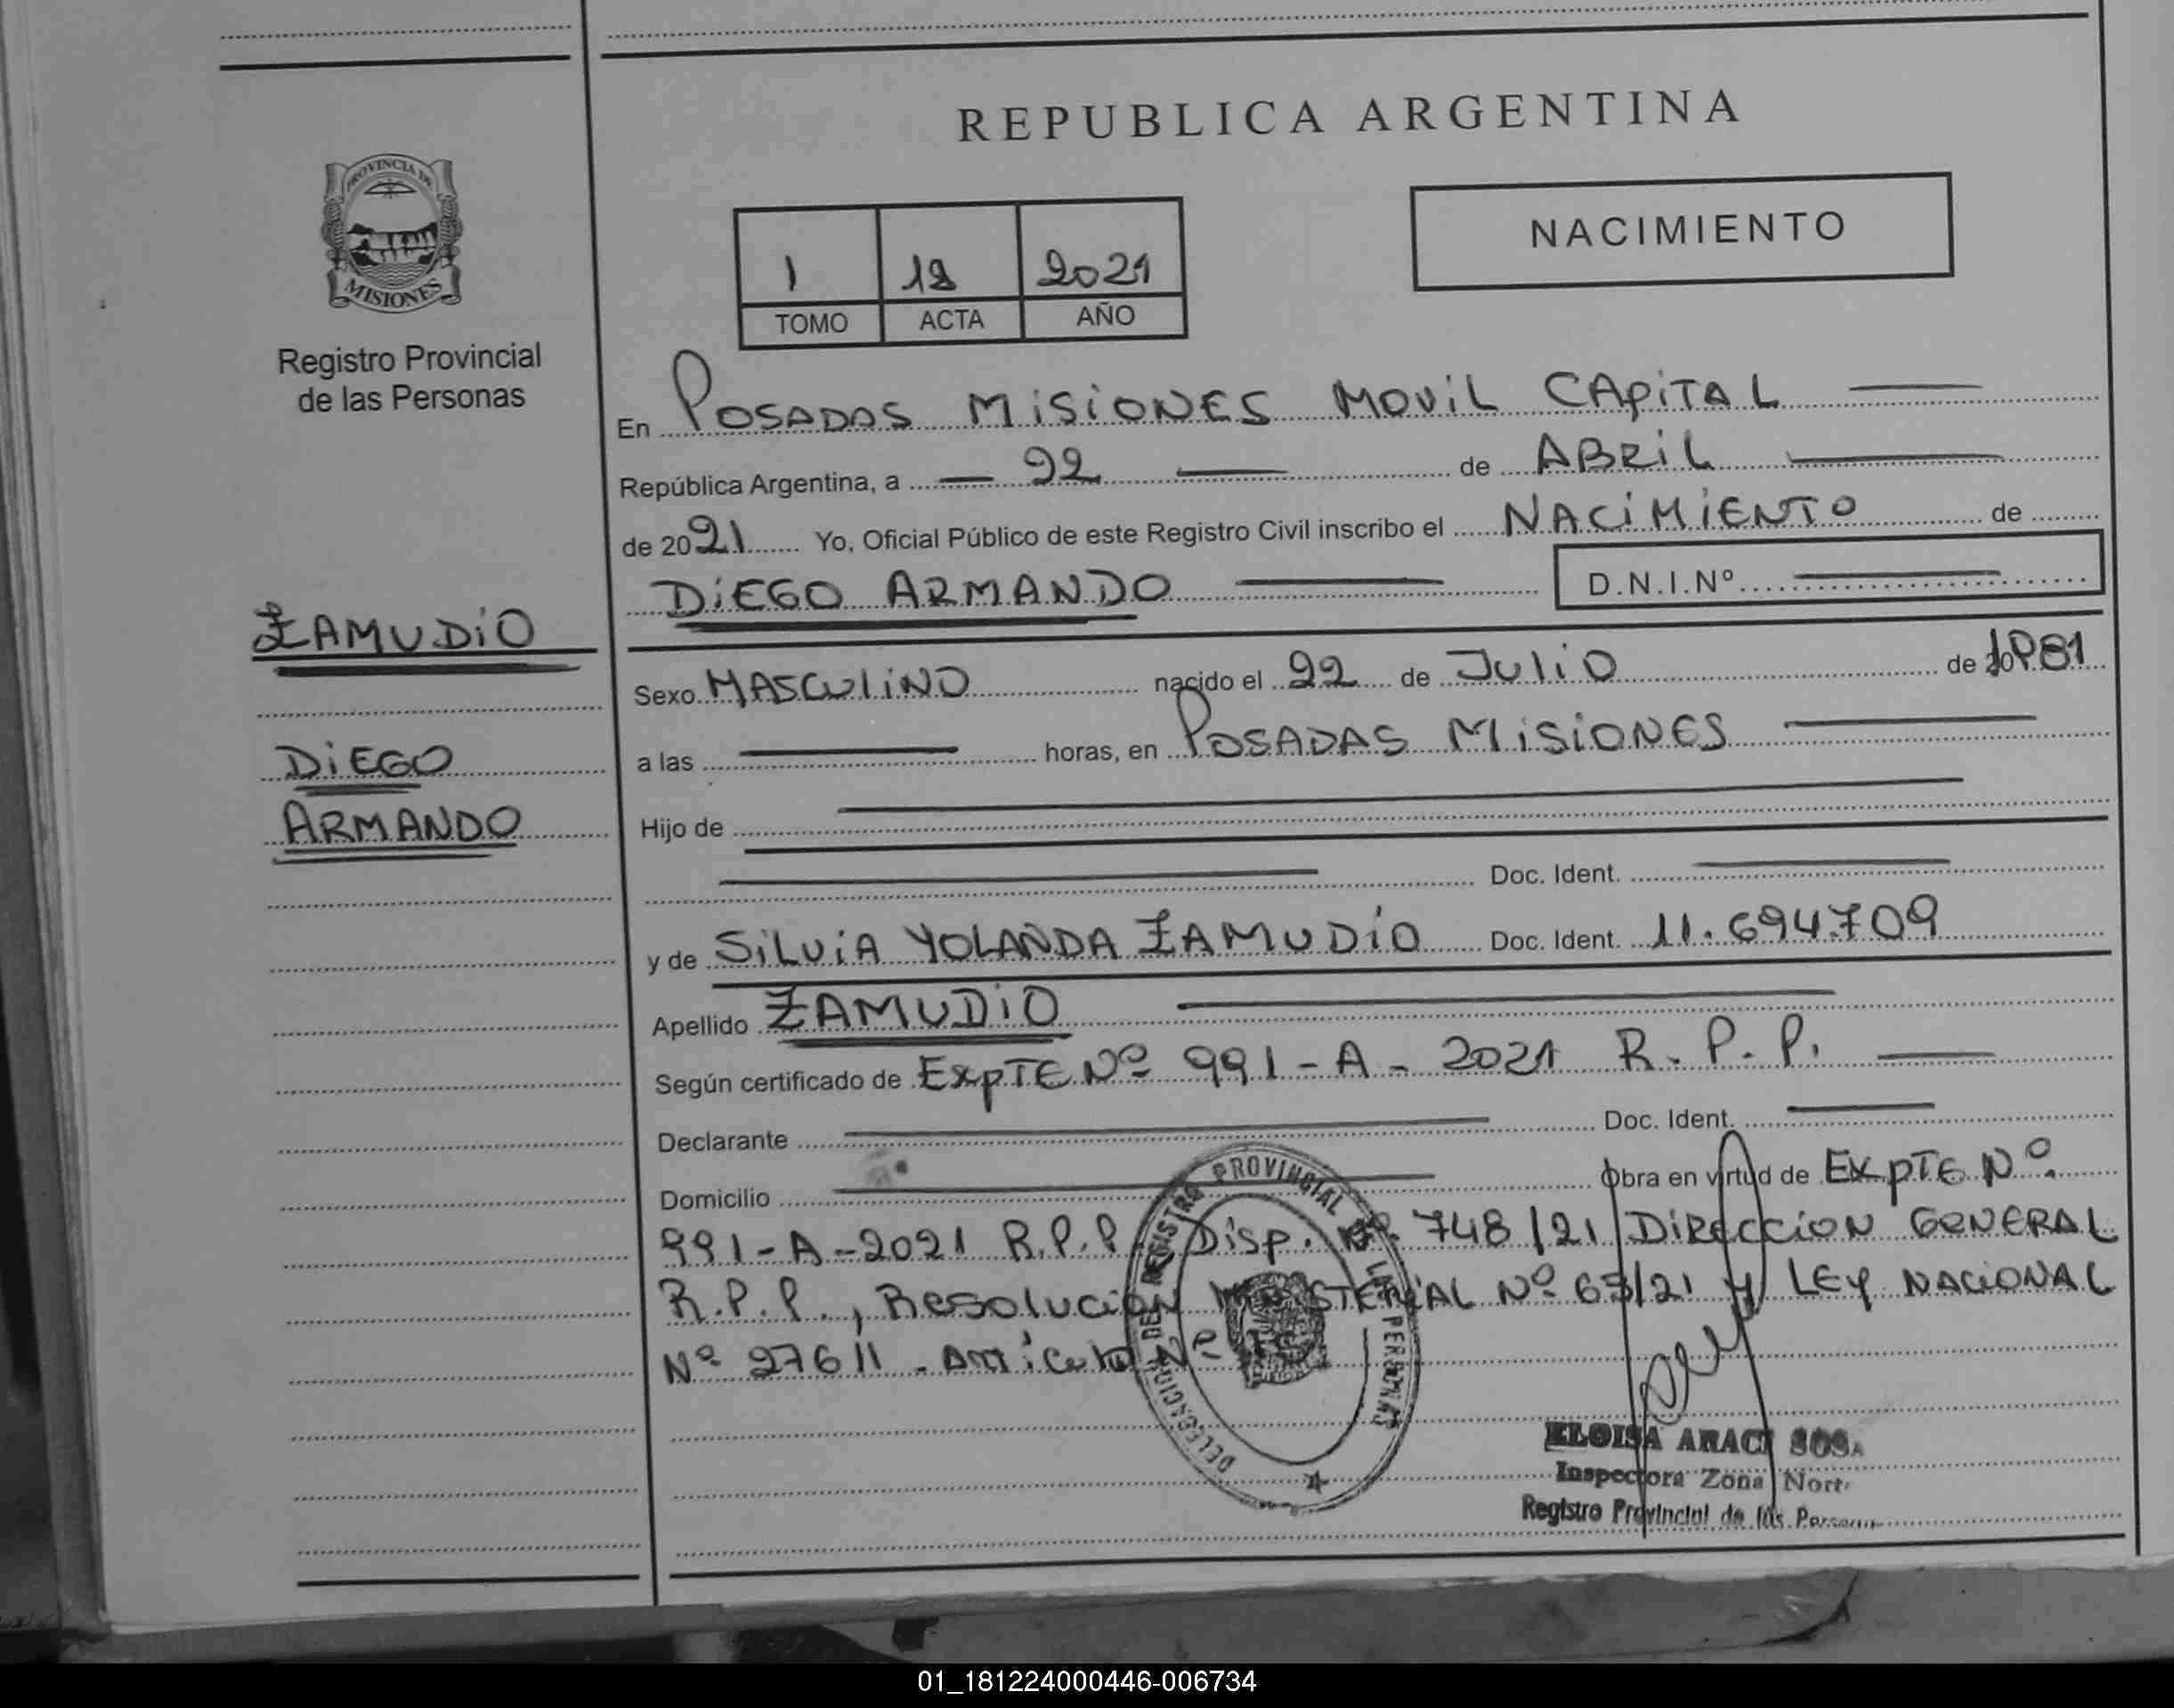 REPUBLICA ARGENTINA
PROVINCIA DE
MISIONES
Registro Provincial
de las Personas
NACIMIENTO
1 18 2021
TOMO ACTA AÑO
En POSADAS MISIONES MOVIL CAPITAL
República Argentina, a 22 de ABRIL
de 2021 Yo, Oficial Público de este Registro Civil inscribo el NACIMIENTO de
DIEGO ARMANDO D.N.I.Nº
ZAMUDIO
DIEGO
ARMANDO
Sexo MASCULINO nacido el 22 de JULIO de 1981
a las horas, en POSADAS MISIONES
Hijo de
Doc. Ident.
y de SILVIA YOLANDA ZAMUDIO Doc. Ident. 11.694.709
Apellido ZAMUDIO
Según certificado de EXPTE Nº 991-A-2021 R.P.P.
Declarante Doc. Ident.
Domicilio Obra en virtud de EXPTE Nº
991-A-2021 R.P.P. Disp. Nº 748/21 DIRECCION GENERAL
R.P.P., Resolución MINISTERIAL Nº 65/21 y LEY NACIONAL
Nº 27611 - Articulo Nº
DELEGACION DEL REGISTRO PROVINCIAL DE LAS PERSONAS
ELOISA ARACI SOSA
Inspectora Zona Norte
Registro Provincial de las Personas
01_181224000446-006734